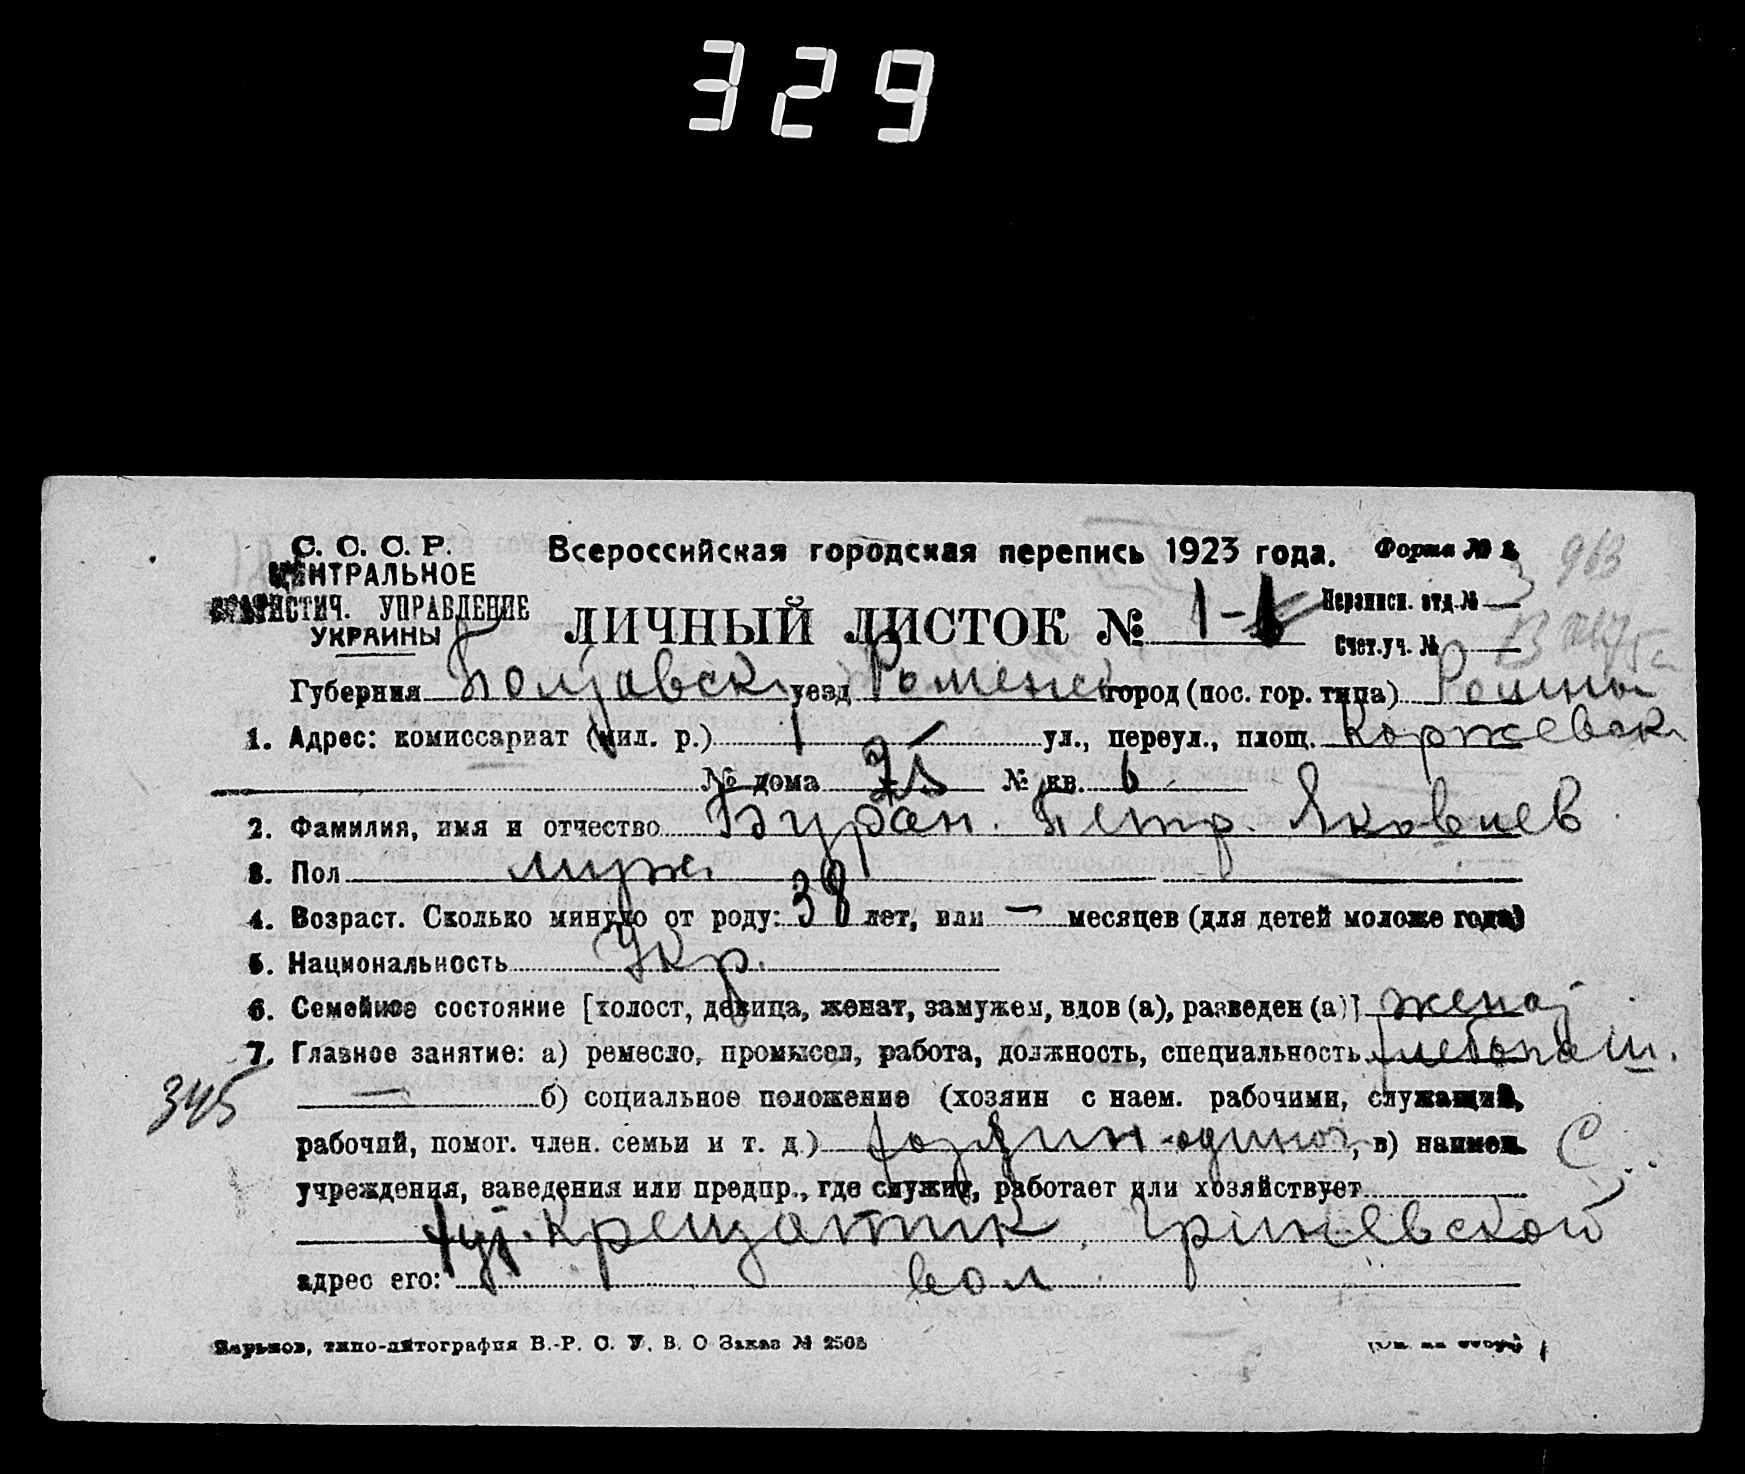 329
С. С. С. Р.
ЦЕНТРАЛЬНОЕ
СТАТИСТИЧ. УПРАВЛЕНИЕ
УКРАИНЫ
Всероссийская городская перепись 1923 года.
Форма № 2
963
ЛИЧНЫЙ ЛИСТОК № 1-
Переписн. отд. №
Счет. уч. №
Губерния Полтавск уезд Роменск город (пос. гор. типа) Ромны
1. Адрес: комиссариат (мил. р.) 1 ул., переул., площ. Коржевск
№ дома 75 № кв. 6
2. Фамилия, имя и отчество Бурбан. Петр. Яковлев
3. Пол муж.
4. Возраст. Сколько минуло от роду: 38 лет, или — месяцев (для детей моложе года)
5. Национальность Укр.
6. Семейное состояние [холост, девица, женат, замужем, вдов (а), разведен (а)] женат
7. Главное занятие: а) ремесло, промысел, работа, должность, специальность хлебопаш.
345
— б) социальное положение (хозяин с наем. рабочими, служащий,
рабочий, помог. член. семьи и т. д.) хозяин-одиноч, в) наимен.
С
учреждения, заведения или предпр., где служит, работает или хозяйствует
хут. Крещатик, Гриневской
адрес его: вол
Харьков, типо-литография В.-Р. С. У. В. О Заказ № 2503